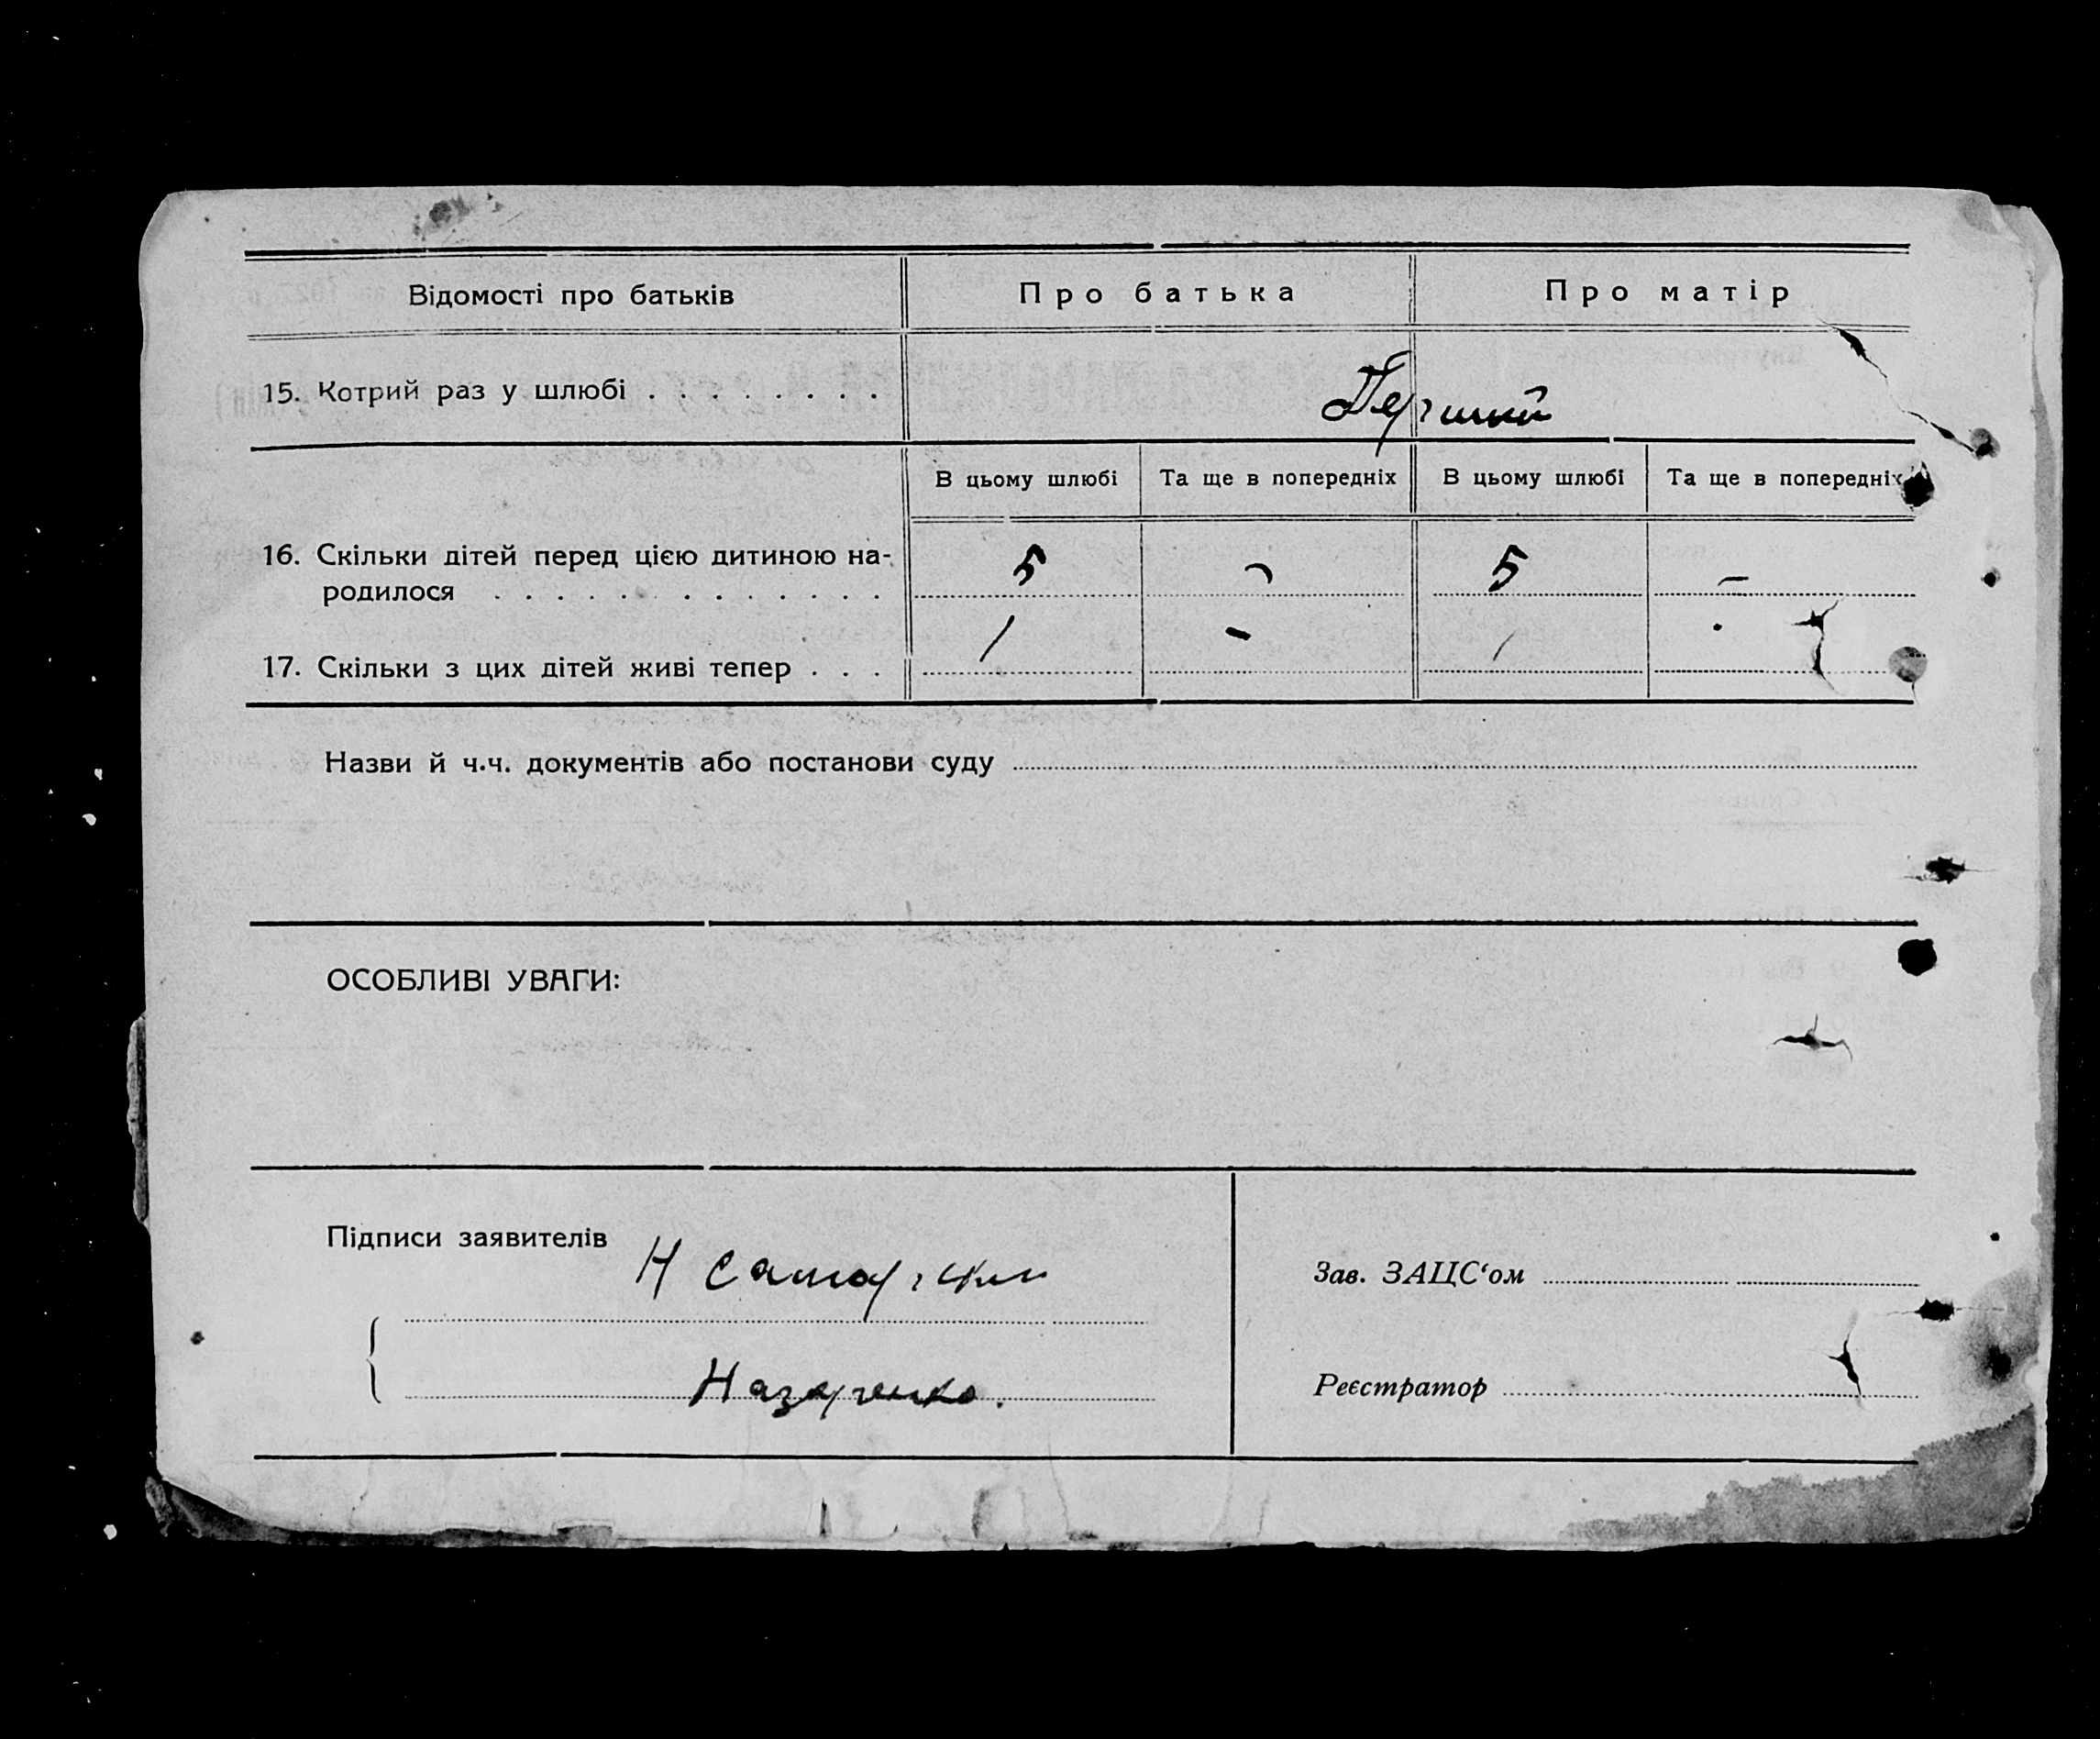 Відомості про батьків Про батька Про матір
15. Котрий раз у шлюбі . . . . . . . . . Перший
В цьому шлюбі Та ще в попередніх В цьому шлюбі Та ще в попередніх
16. Скільки дітей перед цією дитиною на-
родилося . . . . . . . . . . . . . 5 – 5 –
17. Скільки з цих дітей живі тепер . . . 1 - 1 -
Назви й ч.ч. документів або постанови суду
ОСОБЛИВІ УВАГИ:
Підписи заявителів Н
Зав. ЗАЦС‘ом
Назаренко.
Реєстратор